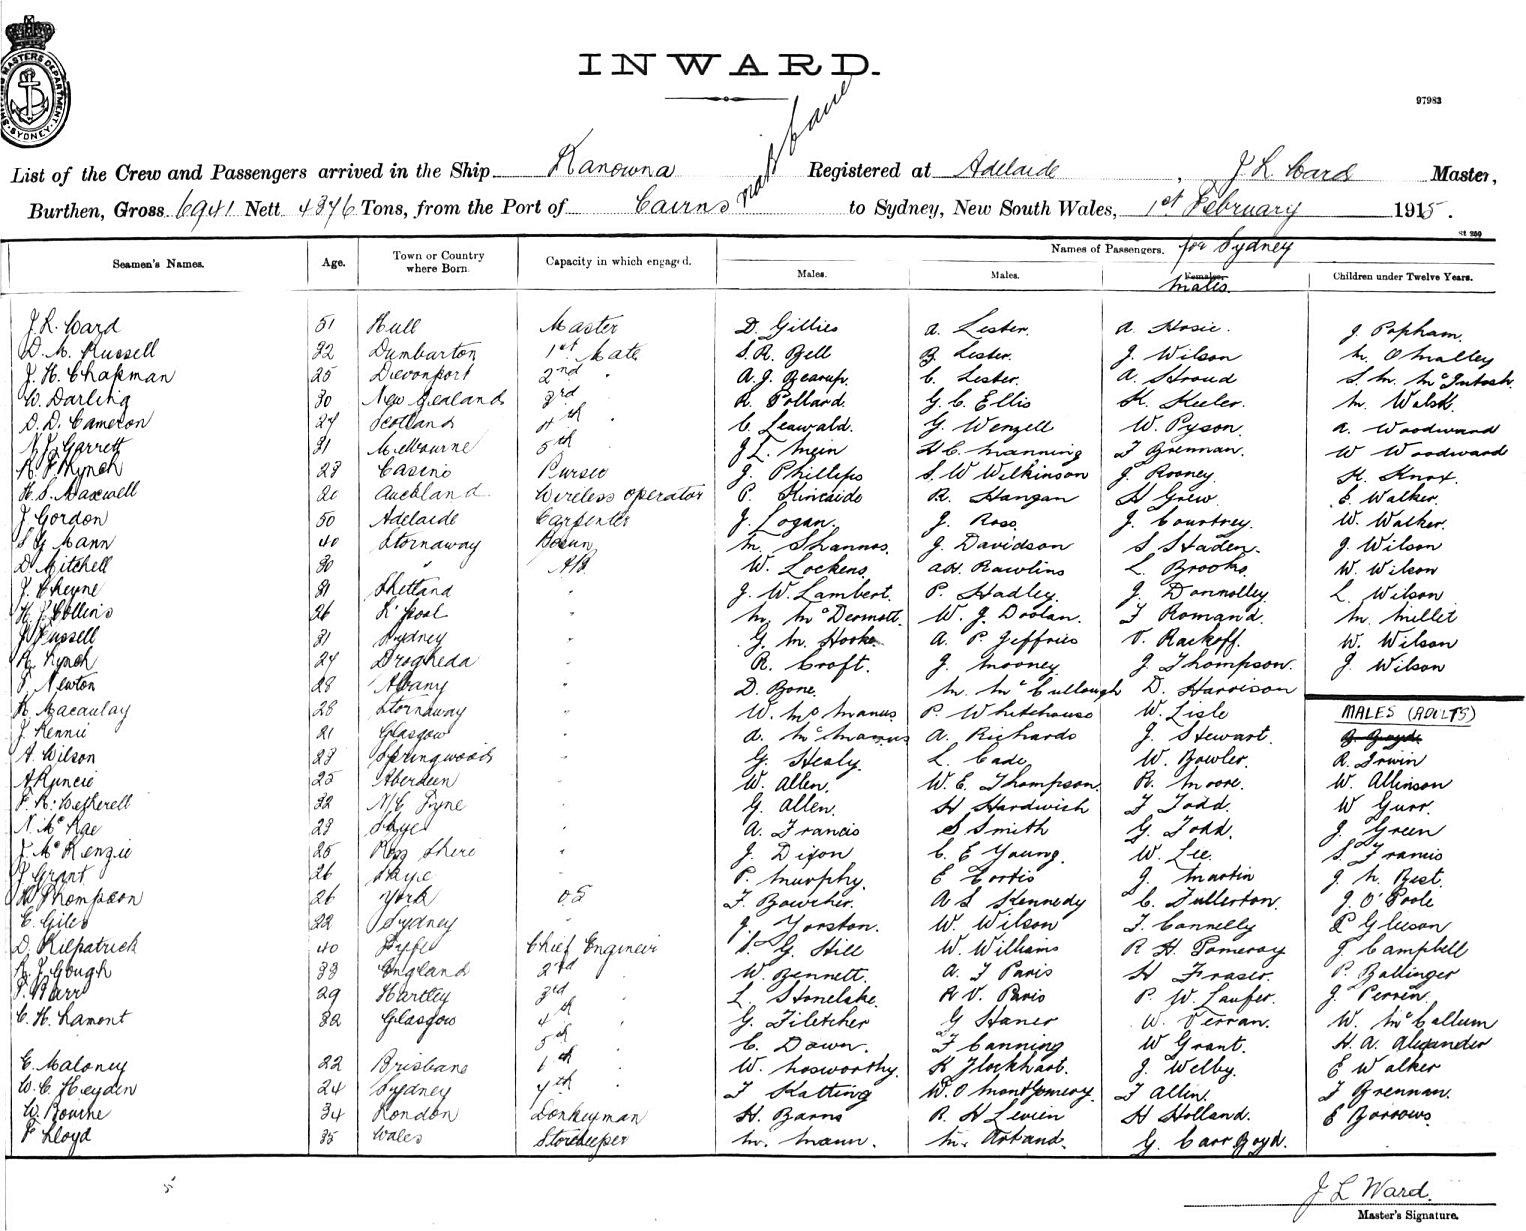 SHIPPING MASTERS DEPARTMENT SYDNEY
INWARD.
97983
List of the Crew and Passengers arrived in the Ship Kanowna Registered at Adelaide, J L Ward Master,
Burthen, Gross 6941 Nett 4376 Tons, from the Port of Cairns to Sydney, New South Wales, 1st February 1915.
St 259
Seamen's Names. Age. Town or Country where Born. Capacity in which engaged. Names of Passengers. for Sydney
Males. Males. Females. Males. Children under Twelve Years.
J. L. Ward 51 Hull Master D. Gillies A. Lester. A. Hosie. J Popham.
D. M. Russell 32 Dumbarton 1st Mate S. R. Bell B. Lester. J. Wilson M. O Malley
J. H. Chapman 25 Devonport 2nd " A. J. Bearup. C. Lester. A. Stroud S. M. McIntosh.
W. Darling 30 New Zealand 3rd " R. Pollard. G. C. Ellis H. Keeler. M. Walsh.
D. D. Cameron 27 Scotland 4th " C. Leawald. G. Wenzell W. Pyson. A. Woodward
Garrett 31 Melbourne 5th " J L. Mein H C. Manning F Brennan. W Woodward
Lynch 23 Casino Purser J. Phillips S. W Wilkinson J. Rooney. K. Knox.
H. S. Maxwell 20 Auckland Wireless operator P. Kincaide R. Hangan H Grew. E. Walker.
J Gordon 50 Adelaide Carpenter J. Logan. J. Ross. J. Courtney. W. Walker.
S G Mann 40 Stornaway Bosun M. Shannos. J. Davidson S Staden. J. Wilson
D. Mitchell 30 " A/B W. Lockens. A H. Rawlins L. Brooks. W. Wilson
J. Cheyne 31 Shetland " J. W. Lambert. P. Hadley. J. Donnolley. L. Wilson
H. J. Collins 26 L'pool " M. McDermott. W. J. Doolan. F Romand. M. Millet
J Russell 31 Sydney " G. M. Hooke. A. P. Jeffries V. Rackoff. W. Wilson
R. Lynch 24 Drogheda " R. Croft. J. Mooney. J Thompson. J. Wilson
Newton 28 Albany " D. Bone. M. McCullough D. Harrison
K. Macaulay 28 Stornaway " W. McManus P. Whitehouse W. Lisle MALES (ADULTS)
J. Rennie 21 Glasgow " A. McManus A. Richards J. Stewart.
A. Wilson 23 Springwood " G. Healy. L. Cade. W. Bowler. R. Irwin
A Runcie 25 Aberdeen " W. Allen. W. E. Thompson. R. Moore. W. Allinson
32 N/C Tyne " G. Allen. H Hardwich F Todd. W Gurr.
N. McRae 23 Skye " A. Francis S Smith G. Todd. J. Green
J. McKenzie 25 Ross Shire " J. Dixon C. E Young. W. Lee. S. Francis
J Grant 26 Skye " P. Murphy. E Cortis J. Martin J. M. Best.
Thompson 26 York O.S F. Bowcher. A S Kennedy C. Fullerton. J. O'Toole
C. Giles 22 Sydney " J. Yorston. W. Wilson F. Connelly P Gleeson
D. Kilpatrick 40 Fyfe Chief Engineer S. G. Hill W. Williams R H. Pomeroy J. Campbell
R. J. Gough 33 England 2nd " W. Bennett. A. F Paris H Fraser. P. Ballinger
Barr 29 Hartley 3rd " L. Stonelake. R V. Paris P. W. Laufer. J. Perrin.
C. H. Lamont 32 Glasgow 4th " G. Filetcher G Haner W. Verran. W. McCallum
5th " C. Dawn. F Canning W Grant. H. A. Alexander
C. Maloney 22 Brisbane 6th " W. Nosworthy. K Flockhart. J. Welby. E Walker
W. C. Heyden 24 Sydney 7th " F Katting W. O Montgomery. F Allin. F Brennan.
W. Bourne 34 London Donkeyman H. Barns R. H Levien H Holland. E Borrows
F Lloyd 35 Wales Storekeeper M. Mann. M. G. Carr Boyd.
J L Ward.
Master's Signature.